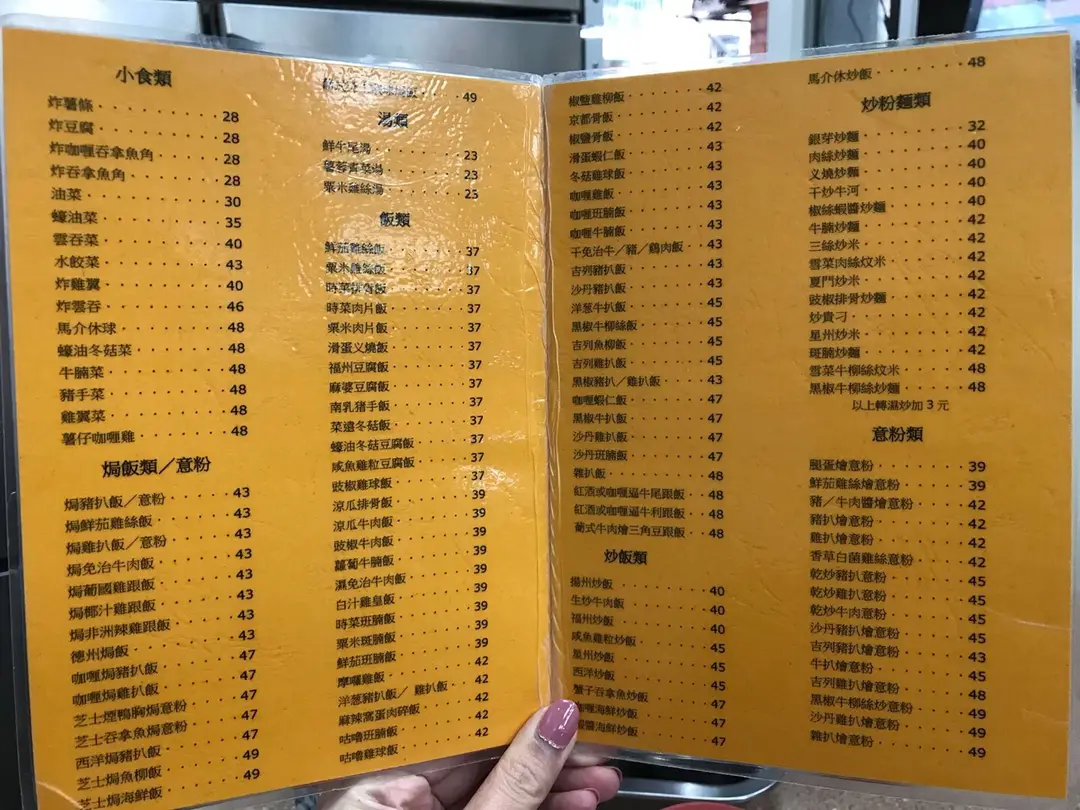 小食類
炸薯條 28
炸豆腐 28
炸咖喱吞拿魚角 28
炸吞拿魚角 28
油菜 30
蠔油菜 35
雲吞菜 40
水餃菜 43
炸雞翼 40
炸雲吞 46
馬介休球 48
蠔油冬菇菜 48
牛腩菜 48
豬手菜 48
雞翼菜 48
薯仔咖喱雞 48
焗飯類／意粉
焗豬扒飯／意粉 43
焗鮮茄雞絲飯 43
焗雞扒飯／意粉 43
焗免治牛肉飯 43
焗葡國雞跟飯 43
焗椰汁雞跟飯 43
焗非洲辣雞跟飯 43
德州焗飯 43
咖喱焗豬扒飯 47
咖喱焗雞扒飯 47
芝士煙鴨胸焗意粉 47
芝士吞拿魚焗意粉 47
西洋焗豬扒飯 47
芝士焗魚柳飯 49
芝士焗海鮮飯 49
49
湯類
鮮牛尾湯 23
蕃茄青菜湯 23
粟米雞絲湯 23
飯類
鮮茄雞絲飯 37
粟米雞絲飯 37
時菜排骨飯 37
時菜肉片飯 37
粟米肉片飯 37
滑蛋义燒飯 37
福州豆腐飯 37
麻婆豆腐飯 37
南乳豬手飯 37
菜遠冬菇飯 37
蠔油冬菇豆腐飯 37
咸魚雞粒豆腐飯 37
豉椒雞球飯 37
涼瓜排骨飯 39
涼瓜牛肉飯 39
豉椒牛肉飯 39
蘿蔔牛腩飯 39
濕免治牛肉飯 39
白汁雞皇飯 39
時菜班腩飯 39
粟米斑腩飯 39
鮮茄班腩飯 39
摩囉雞飯 42
洋葱豬扒飯／雞扒飯 42
麻辣窩蛋肉碎飯 42
咕嚕班腩飯 42
咕嚕雞球飯 42
椒鹽雞柳飯 42
京都骨飯 42
椒鹽骨飯 42
滑蛋蝦仁飯 43
冬菇雞球飯 43
咖喱雞飯 43
咖喱班腩飯 43
咖喱牛腩飯 43
干免治牛／豬／鷄肉飯 43
吉列豬扒飯 43
沙丹豬扒飯 43
洋葱牛扒飯 45
黑椒牛柳絲飯 45
吉列魚柳飯 45
吉列雞扒飯 45
黑椒豬扒／雞扒飯 43
咖喱蝦仁飯 47
黑椒牛扒飯 47
沙丹雞扒飯 47
沙丹班腩飯 47
雜扒飯 48
紅酒或咖喱逼牛尾跟飯 48
紅酒或咖喱逼牛利跟飯 48
葡式牛肉燴三角豆跟飯 48
炒飯類
揚州炒飯 40
生炒牛肉飯 40
福州炒飯 40
咸魚雞粒炒飯 45
星州炒飯 45
西洋炒飯 45
蟹子吞拿魚炒飯 47
咖喱海鮮炒飯 47
醬海鮮炒飯 47
馬介休炒飯 48
炒粉麵類
銀芽炒麵 32
肉絲炒麵 40
义燒炒麵 40
干炒牛河 40
椒絲蝦醬炒麵 40
牛腩炒麵 42
三絲炒米 42
雪菜肉絲炆米 42
夏門炒米 42
豉椒排骨炒麵 42
炒貴刁 42
星州炒米 42
斑腩炒麵 42
雪菜牛柳絲炆米 48
黑椒牛柳絲炒麵 48
以上轉濕炒加 3 元
意粉類
腿蛋燴意粉 39
鮮茄雞絲燴意粉 39
豬／牛肉醬燴意粉 42
豬扒燴意粉 42
雞扒燴意粉 42
香草白菌雞絲意粉 42
乾炒豬扒意粉 45
乾炒雞扒意粉 45
乾炒牛肉意粉 45
沙丹豬扒燴意粉 45
吉列豬扒燴意粉 43
牛扒燴意粉 45
吉列雞扒燴意粉 48
黑椒牛柳絲炒意粉 49
沙丹雞扒燴意粉 49
雜扒燴意粉 49